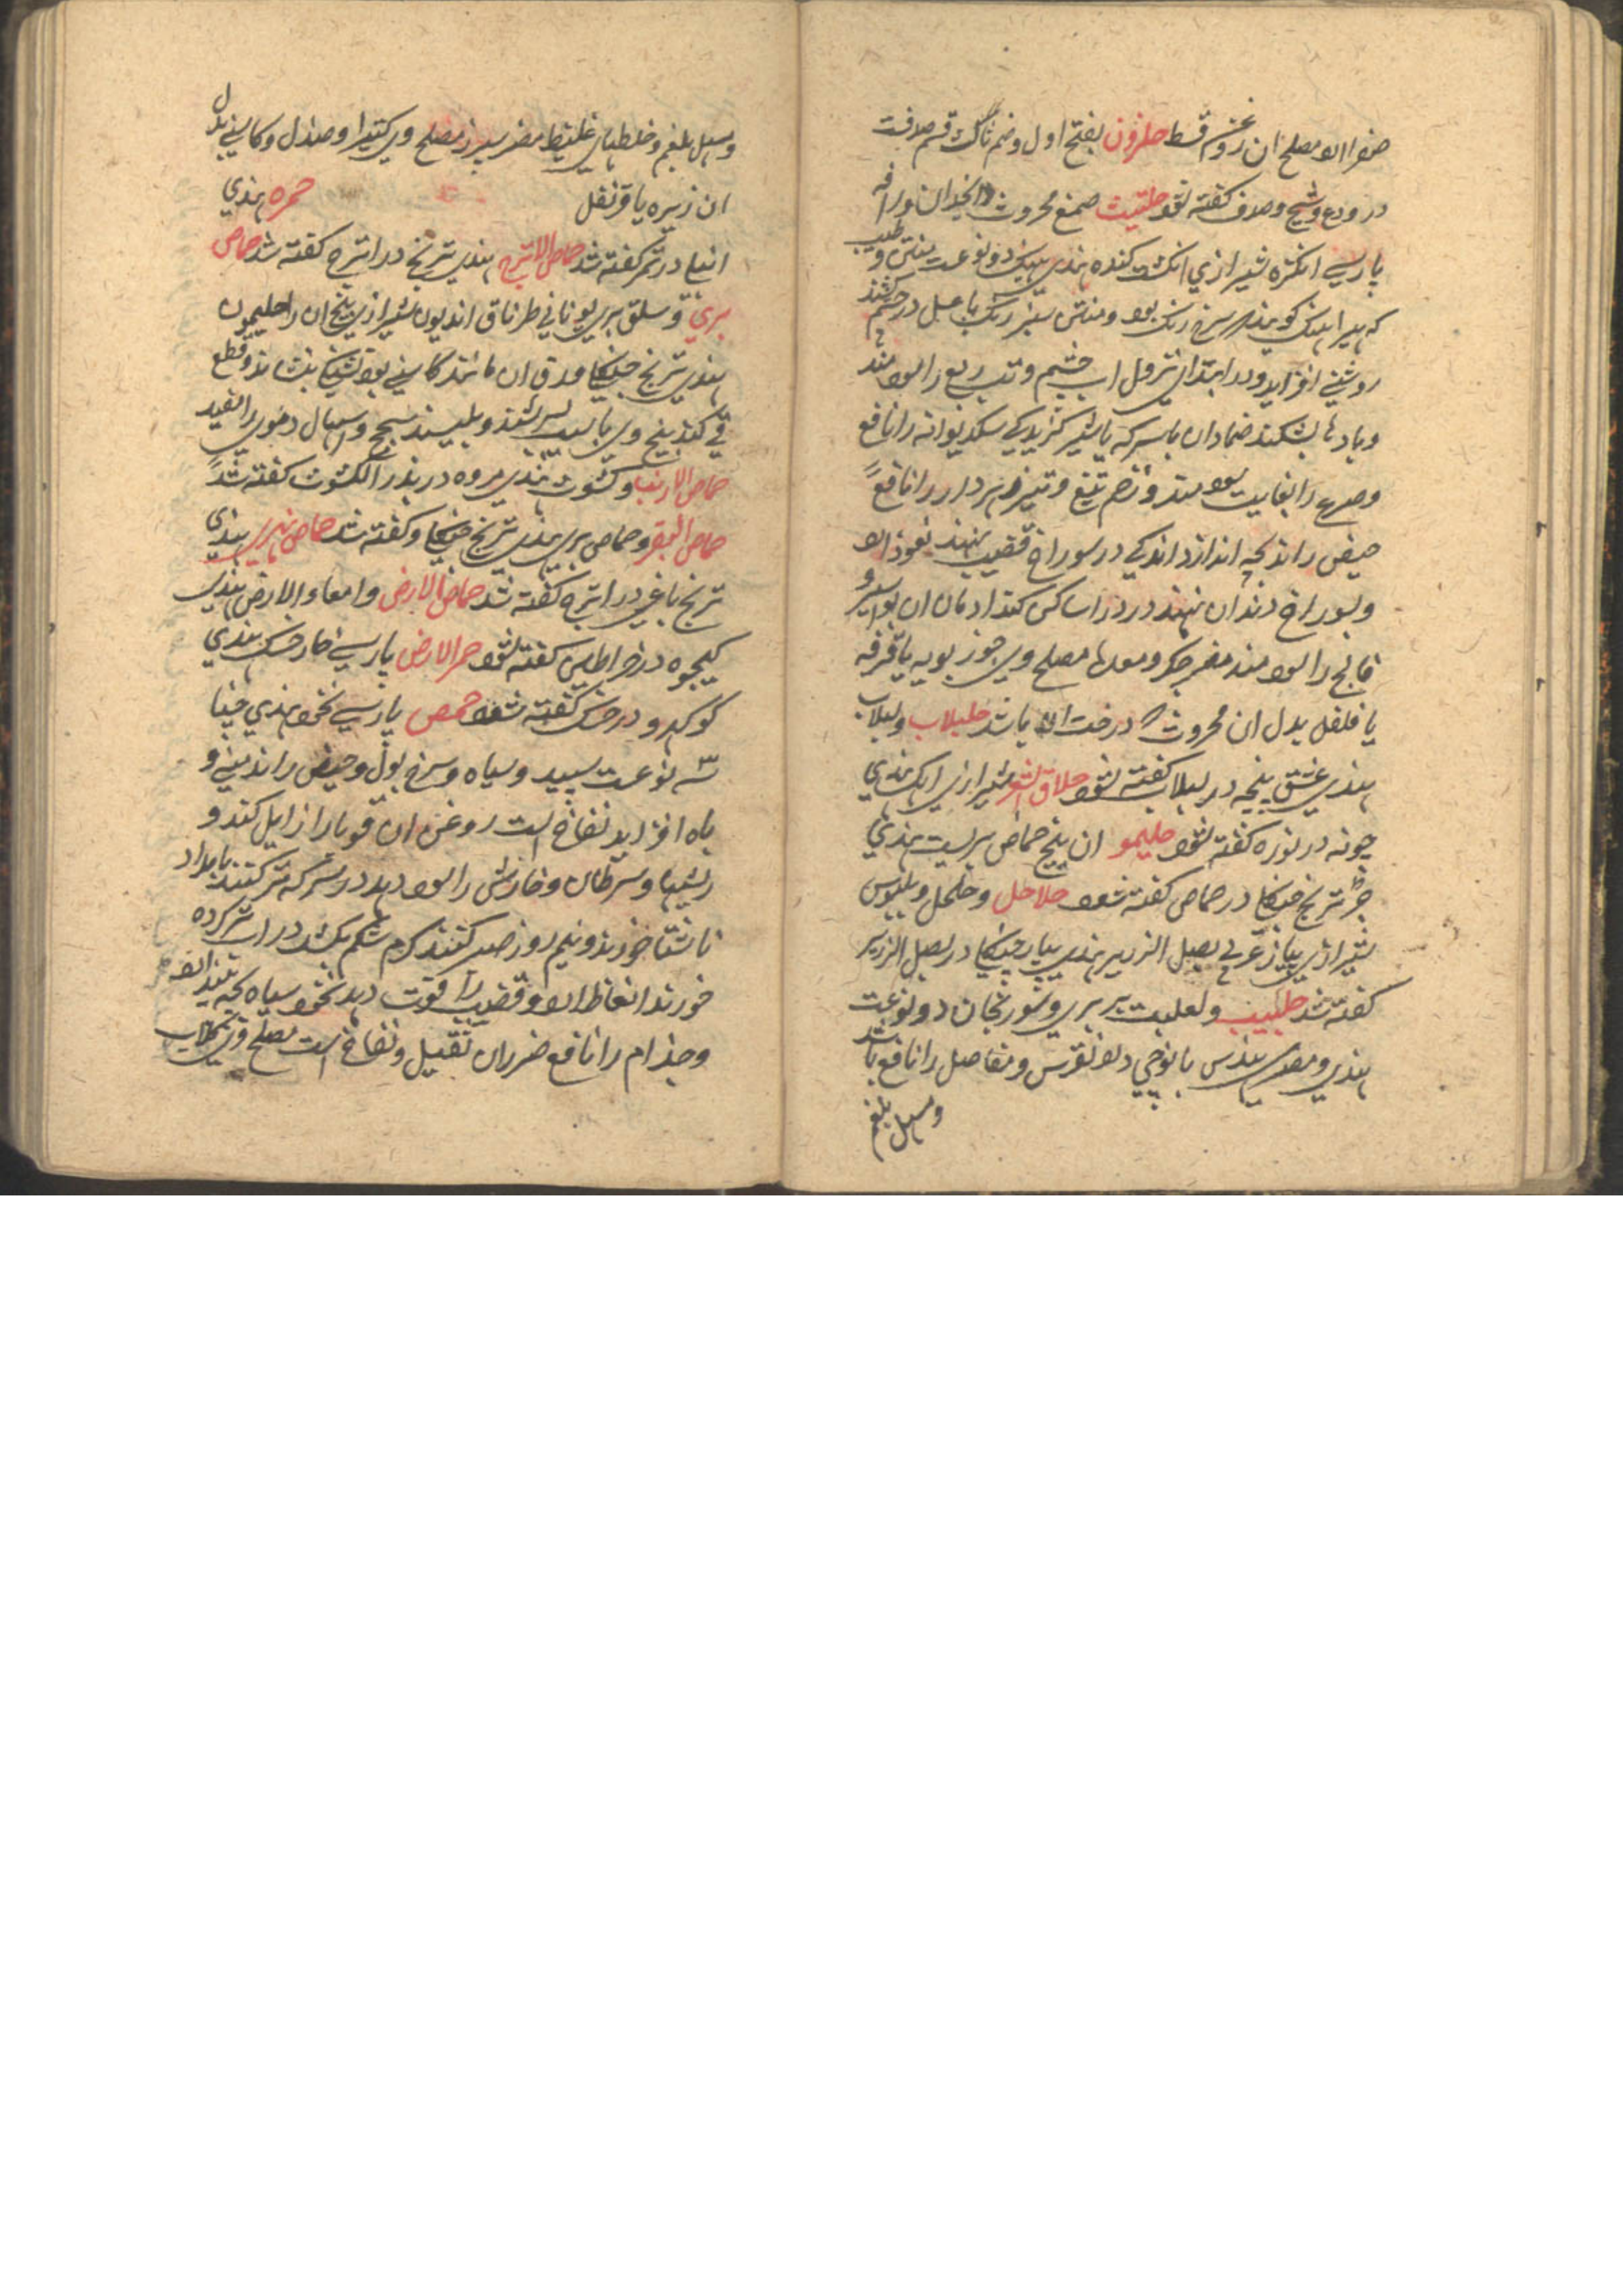 صفرا مصلح ان روغن قسط حلزون بفتح اول و ضم ثالث قسم صدفست
در ودع و شیح و صدف کفته شود حلتیت صمغ محروث انجدان
پارسی انکزه شیرازی انکشت کنده هندی هینک دو نوعست منتن و طیب
که هیرا هینک کویند سرخ رنک بود و منتن سبز رنک با عسل در چشم کشند
روشنی افزاید و در ابتدای نزول اب چشم و تب ربع را سود مند
و بادها بشکند ضماد ان با سرکه یا شیر کزیدکی سک دیوانه را نافع
و صرع را بغایت سودمند و زخم تیغ و تیر زهردار را نافع
حیض را اند بچه اندازد اندکی در سوراخ قضیب نهند نعوذ
و بسوراخ دندان نهند درد را ساکن کند ادمان ان بواسیر و
فالج را سود مند مضر جکر و معدها مصلح وی جوز بویه یا قرفه
یا فلفل بدل ان محروث درخت باشد حلبلاب و لبلاب
هندی عشق پیچه در لبلاب کفته شود حلاق الشعر شیرازی اهک هندی
چونه در نوره کفته شود حلیمو ان بیخ حماض بریست هندی
جر ترنج جنکلی در حماض کفته شود حلاحل و خلخل و بلبوس
شیرازی پیاز عربی بصل الزریر هندی پیاز جنکلی در بصل الزریر
کفته شد حلبیب و لعلبت بربری و سورنجان دو نوعست
هندی و مصری هندی نقرس و مفاصل را نافع باشد
و مسهل بلغم
و مسهل بلغم و خلطهای غلیظ مضر سپرز مصلح وی کتیرا و صندل و کاسنی بدل
ان زیره یا قرنفل حمره هندی
انبلی در تمر کفته شد حماض الاترج هندی ترنج در اترج کفته شد حماض
بری و سلق بری یونانی طرناق اندیون شیرازی بیخ ان را حلیمون
هندی ترنج جنکلی ورق ان مانند کاسنی بود تشنکی بنشاند و قطع
قی کند بیخ وی با سرشند و بلیسند سحج و اسهال دموی را مفید
حماض الارنب و کشوث هندی مروه در بذر الکشوث کفته شد
حماض البقر و حماض بری هندی ترنج جنکلی و کفته شد حماض نهری هندی
ترنج باغی در اترج کفته شد حماض الارض و امعاء الارض هندی
کیچوه در خراطین کفته شود حمر الارض پارسی خار خسک هندی
کوکهرو در خسک کفته شود حمص پارسی نخود هندی چنا
سه نوعست سپید و سیاه و سرخ بول و حیض را اند منی و
باه افزاید نفاخ است روغن ان قوبا را زایل کند و
ریشها و سرطان و خارش را سود دهد در سرکه تر کنند بامداد
ناشتا خورند و نیم روز صبر کنند کرم شکم بکشد در اب تر کرده
خورند انعاظ و قضیب را قوت دهد نخود سیاه بچه بیندازد
و جذام را نافع ضرر ان ثقیل و نفاخ است مصلح وی کلاب